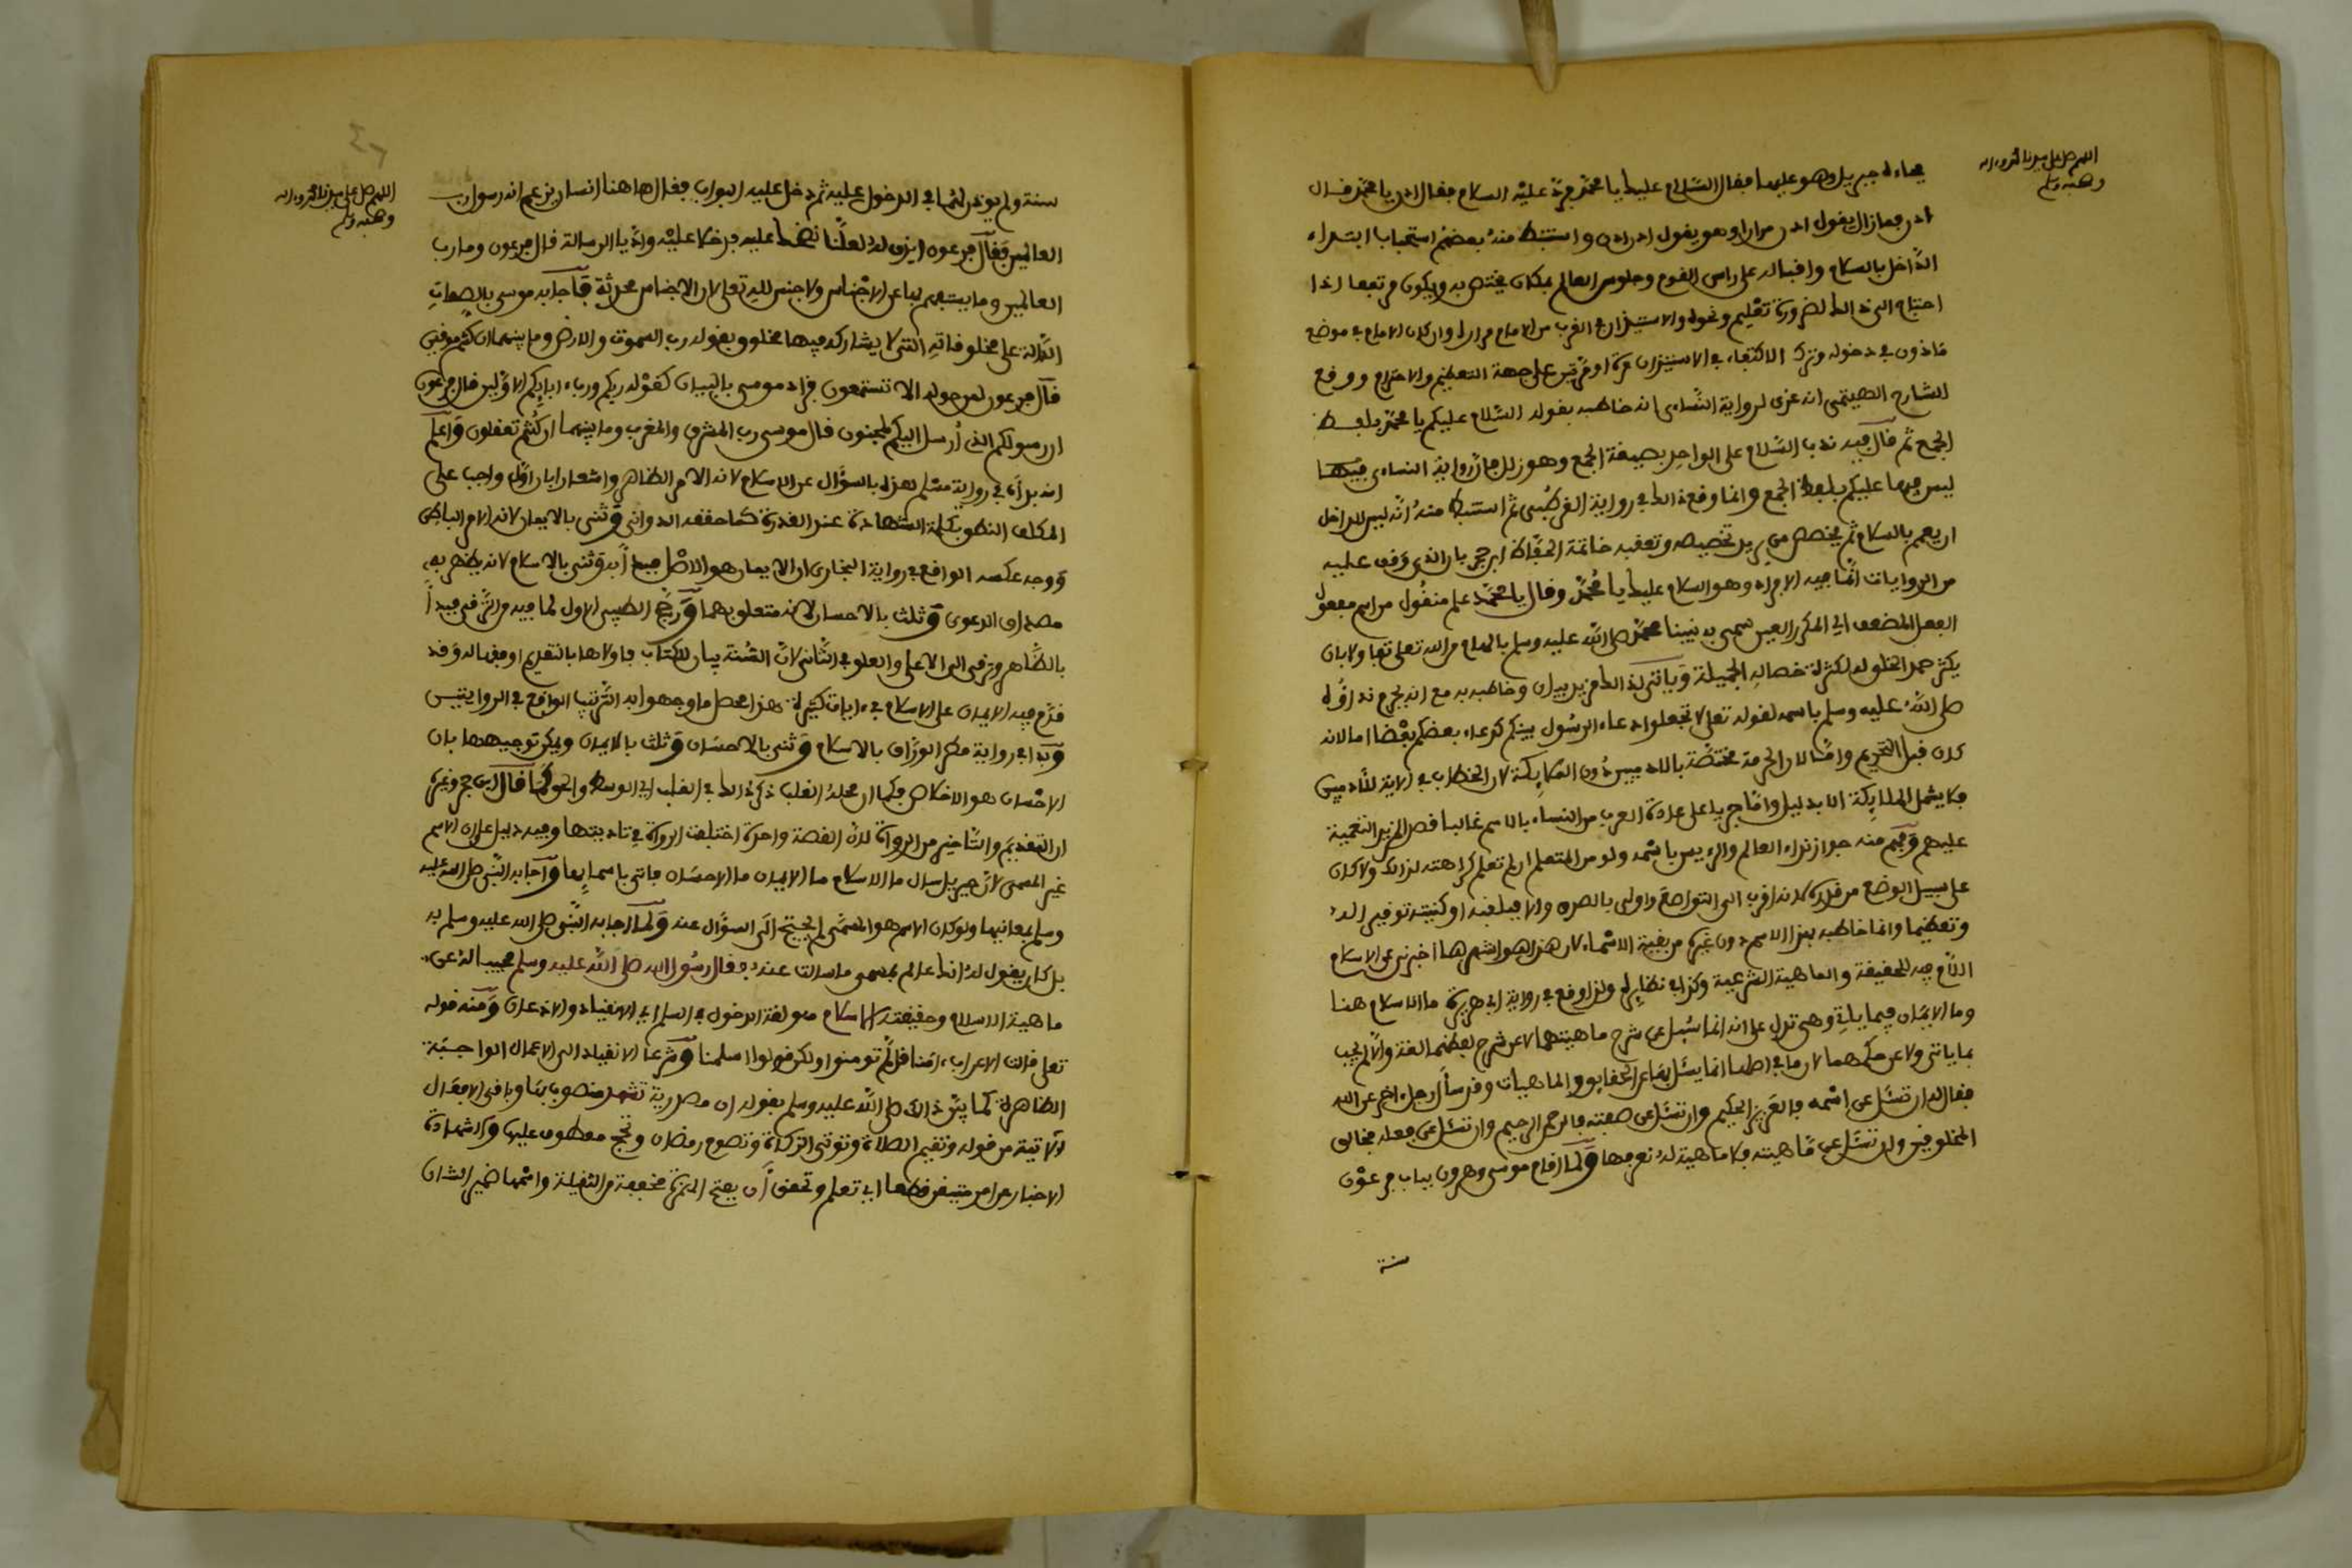 اللهم صل على سيدنا محمد وءاله
وصحبه وسلم
فجاءه جبريل وهو عليها فقال السلام عليك يا محمد فرد عليه السلام فقال ادن يا محمد قال
ادن فما زال يقول ادن مرارا وهو يقول ادن ادن واستنبط منه بعضهم استحباب ابتداء
الداخل بالسلام واقباله على راس القوم وجلوس العالم بمكان يختص به ويكون مرتفعا اذا
احتاج الى ذالك لضرورة تعليم ونحوه والاستيذان في القرب من الامام مرارا وان كان الامام في موضع
ماذون في دخوله وترك الاكتفاء في الاستيذان مرة او مرتين على جهة التعظيم والاحترام ووقع
للشارح الهيتمي انه عزى لرواية النساءى انه خاطبه بقوله السلام عليكم يا محمد بلفظ
الجمع ثم قال فيه ندب السلام على الواحد بصيغة الجمع وهو زلل فان رواية النساءى فيها
ليس فيها عليكم بلفظ الجمع وانما وقع ذالك في رواية القرطبى ثم استنبط منه انه يسن للداخل
ان يعمم بالسلام ثم يخصص من يريد تخصيصه وتعقبه خاتمة الحفاظ ابن حجر بان الذى وقف عليه
من الروايات انما فيه الافراد وهو السلام عليك يا محمد وقال يا محمد علم منقول من اسم مفعول
الفعل المضعف اي المكرر العين سمى به نبينا محمد صلى الله عليه وسلم بالهام من الله تعلى تفاولا بان
يكثر حمد الخلق له لكثرة خصاله الجميلة وياتى لذالك مزيد بيان وخاطبه به مع انه يحرم نداؤه
صلى الله عليه وسلم باسمه لقوله تعلى لا تجعلوا دعاء الرسول بينكم كدعاء بعضكم بعضا اما لانه
كان قبل التحريم واما لان الحرمة مختصة بالادميين دون الملايكة لان الخطاب في الاية للادميين
فلا يشمل الملايكة الا بدليل واما جريا على عادة العرب من النداء بالاسم غالبا قصدا لمزيد التعمية
عليهم وفهم منه جواز نداء العالم والرييس باسمه ولو من المتعلم ان لم تعلم كراهته لذالك ولا كان
على سبيل الوضع من قدره لانه اقرب الى التواضع واولى بالصدق والا فبلقبه او كنيته توقيرا له
وتعظيما وانما خاطبه بهذا الاسم دون غيره من بقية الاسماء لان هذا هو اشهرها اخبرنى عن الاسلام
اللام فيه للحقيقة والماهية الشرعية وكذا في نظايره ولذا وقع في رواية ابى هريرة ما الاسلام هنا
وما الايمان فيما ياتي وهى تدل على انه انما سئل عن شرح ماهيتهما لا عن شرح لفظهما لغة والا لم يجب
بما ياتى ولا عن حكمهما لان ما في اصلها انما يسئل بها عن الحقايق والماهيات وقد سال رجل اخر عن الله
فقال له ان تسئل عن اسمه فالعزيز الحكيم وان تسئل عن صفته فالرحمن الرحيم وان تسئل عن فعله فخالق
المخلوقين وان تسئل عن ماهيته فلا ماهية له نعرفها ولما اقام موسى وهرون بباب فرعون
سنة
اللهم صل على سيدنا محمد وءاله
وصحبه وسلم
سنة ولم يوذن لهما في الدخول عليه ثم دخل عليه البواب فقال ها هنا انسان يزعم انه رسول رب
العالمين فقال فرعون ايذن له لعلنا نضحك عليه فدخلا عليه واديا الرسالة قال فرعون وما رب
العالمين وما يستفهم بها عن الاجناس ولا جنس لله تعلى لان الاجناس محدثة فاجابه موسى بالصفات
الدالة على مخلوقاته التى لا يشاركه فيها مخلوق بقوله رب السموت والارض وما بينهما ان كنتم موقنين
قال فرعون لمن حوله الا تستمعون فزاد موسى بالبيان كقوله ربكم ورب ءابايكم الاولين قال فرعون
ان رسولكم الذى أرسل اليكم لمجنون قال موسى رب المشرق والمغرب وما بينهما ان كنتم تعقلون واعلم
انه بدأ في رواية مسلم هذه بالسؤال عن الاسلام لانه الامر الظاهر واشعارا بان اول واجب على
المكلف النطق بكلمة الشهادة عند القدرة كما حققه الدوانى وثنى بالايمان لانه الامر الباطن
ووجه عكسه الواقع في رواية البخارى ان الايمان هو الاصل فبدأ به وثنى بالاسلام لانه يظهر به
مصداق الدعوى وثلث بالاحسان لانه متعلق بهما ورجح الطيبى الاول لما فيه من الترقى فبدأ
بالظاهر وترقى الى الاعلى والعلو في الثانى لان السنة بيان للكتاب فاولاها بالتقديم اوفقها له وقد
قدم فيه الايمان على الاسلام في ءايات كثيرة هذا محصل ما وجهوا به الترتيب الواقع في الروايتين
وبدا في رواية مطر الوراق بالاسلام وثنى بالاحسان وثلث بالايمان ويمكن توجيهها بان
الاحسان هو الاخلاص فكما ان محله القلب ذكر ذالك في القلب اي الوسط والحق كما قال ابن حجر وغيره
ان التقديم والتاخير من الرواة لان القصة واحدة اختلفت الرواة في تاديتها وفيه دليل على ان الاسم
غير المسمى لان جبريل سال ما الاسلام ما الايمان ما الاحسان فاتى باسمايها واجابه النبى صلى الله عليه
وسلم بمعانيها ولو كان الاسم هو المسمى لم يحتج الى السؤال عنه ولما اجابه النبى صلى الله عليه وسلم به
بل كان يقول له انك عالم بمسمى ما سالت عنه فقال رسول الله صلى الله عليه وسلم مجيبا له عن
ماهية الاسلام وحقيقته الاسلام هو لغة الدخول في السلم اي الانقياد والاذعان ومنه قوله
تعلى قالت الاعراب ءامنا قل لم تومنوا ولكن قولوا اسلمنا وشرعا الانقياد الى الاعمال الواجبة
الظاهرة كما بين ذالك صلى الله عليه وسلم بقوله ان مصدرية تشهد منصوب بها وباقى الافعال
الاتية من قوله وتقيم الصلاة وتوتى الزكاة وتصوم رمضان وتحج معطوف عليها والشهادة
الاخبار عن امر متيقن قطعا اي تعلم وتحقق أن بفتح الهمزة مخففة من الثقيلة واسمها ضمير الشان